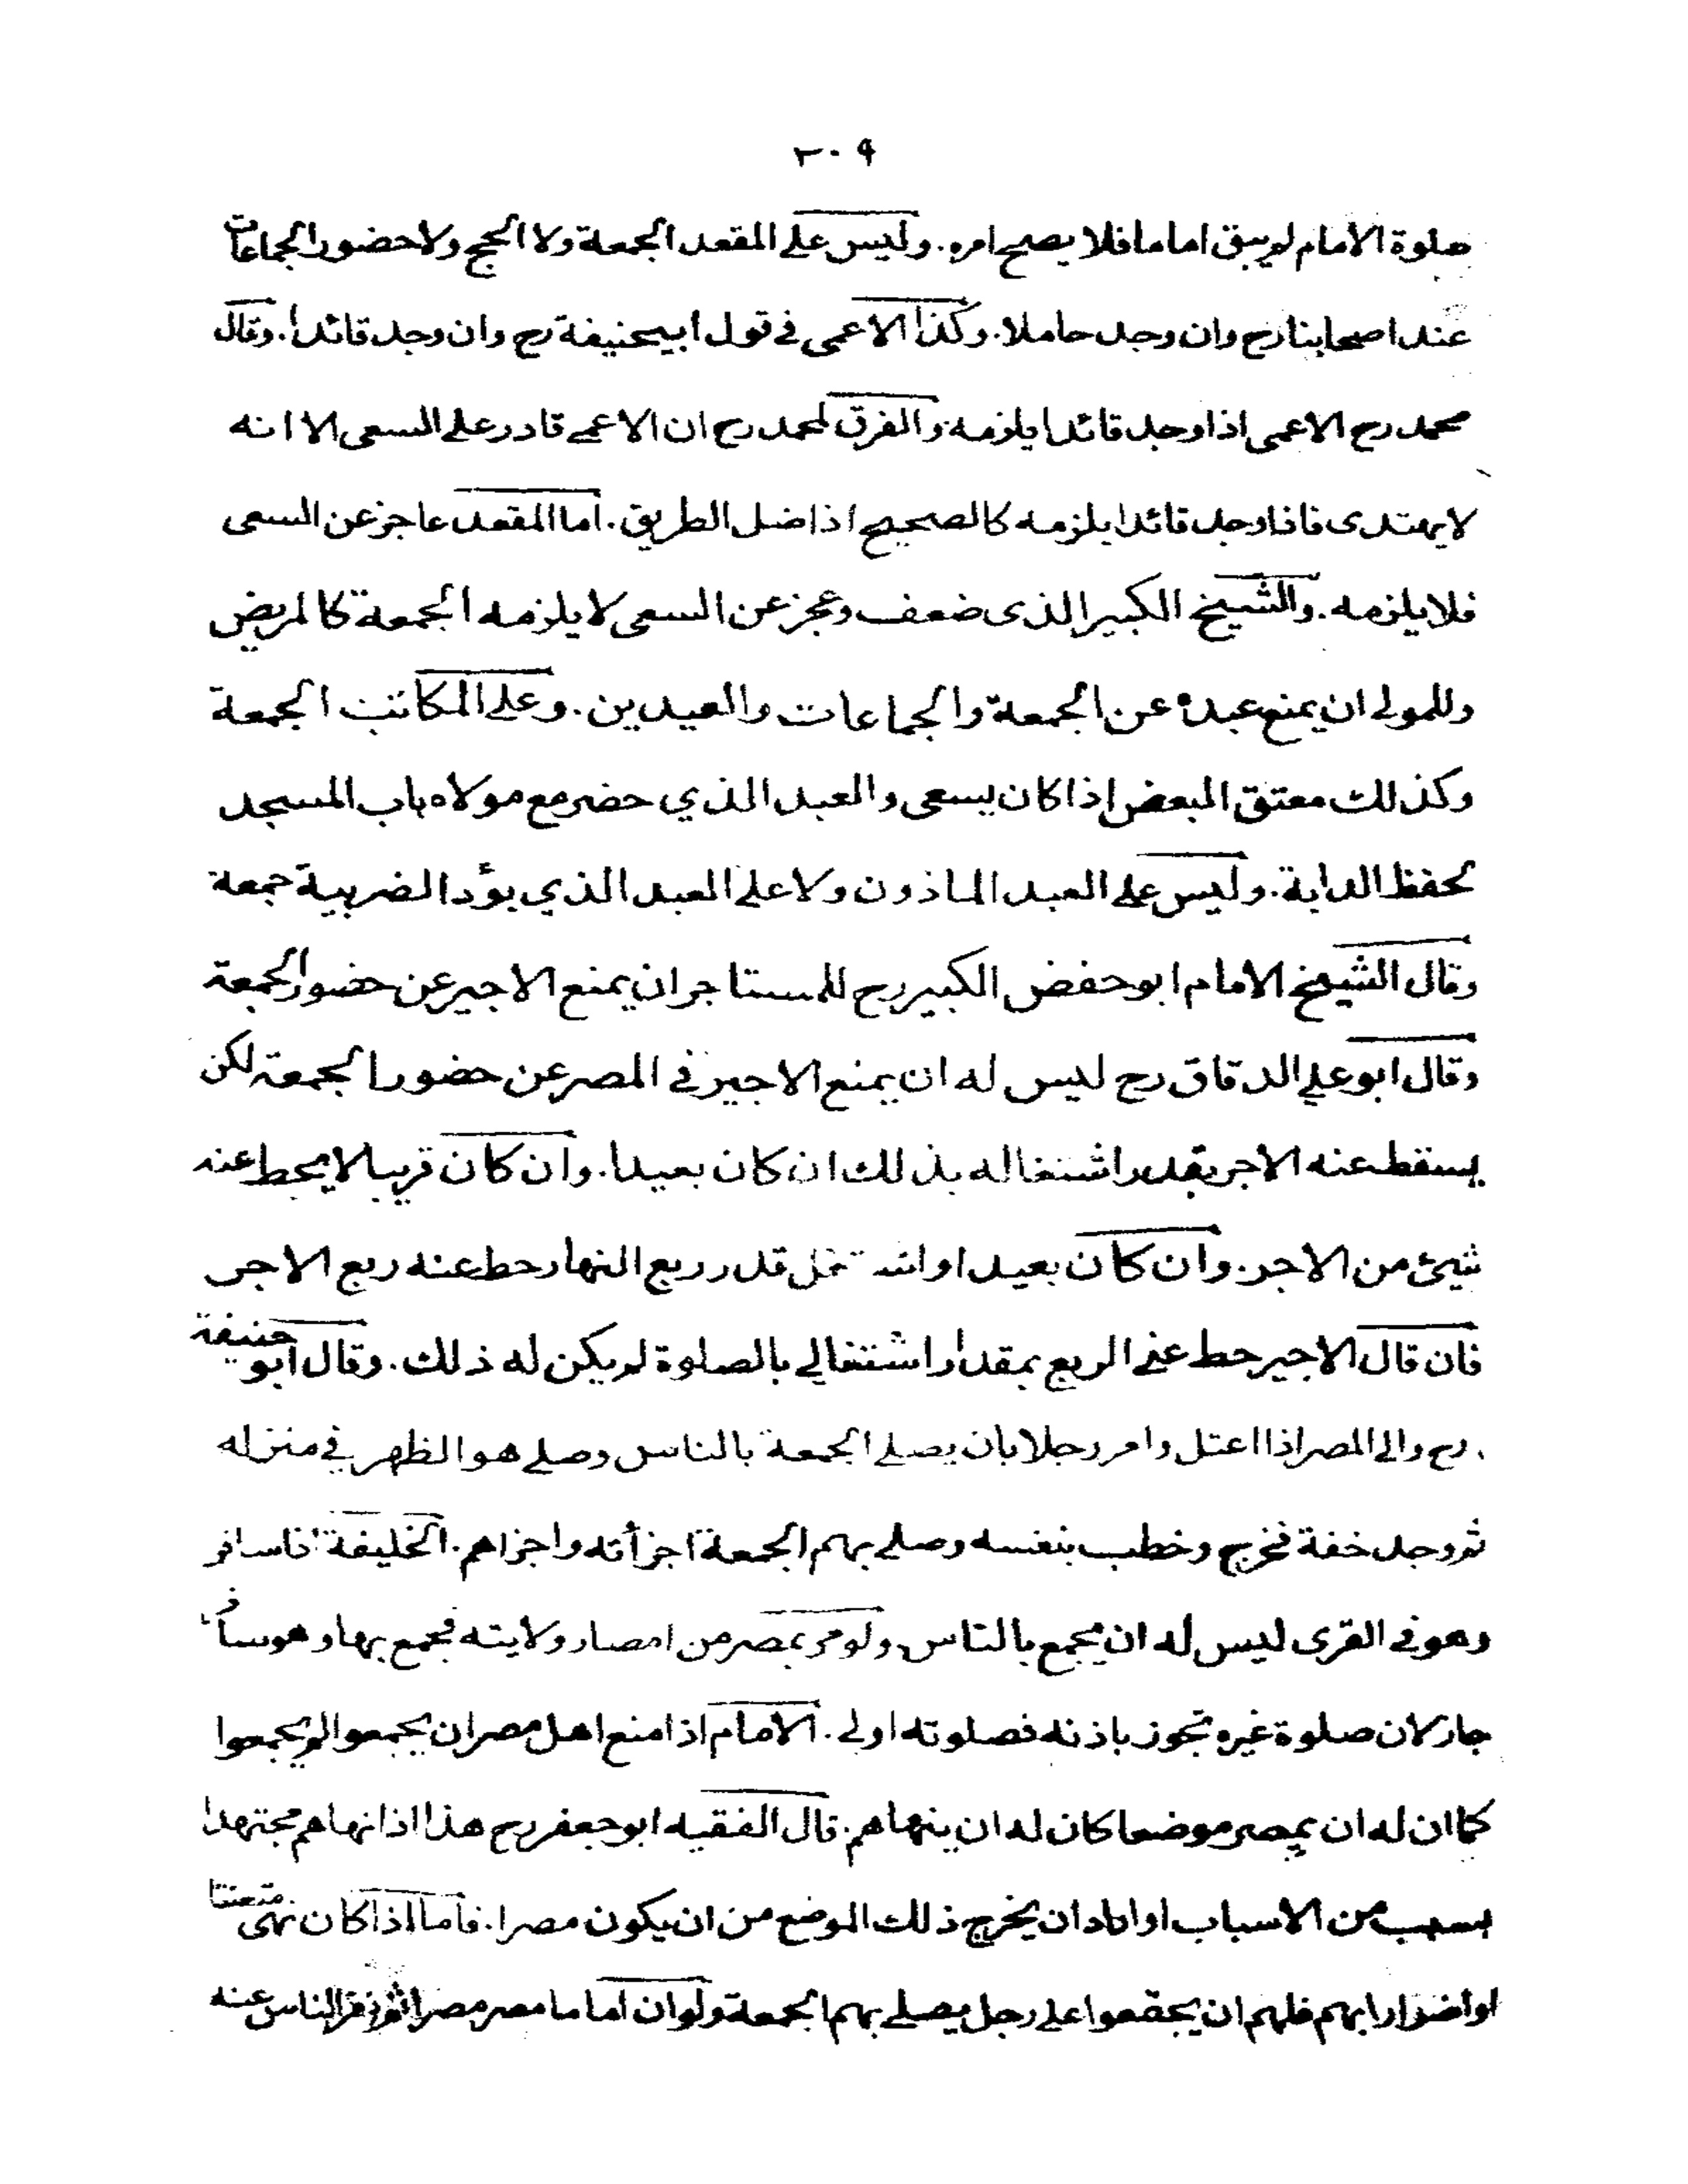 ٢٠٩
صلوة الامام لم يبق اماما فلا يصح امره. وليس على المقعد الجمعة ولا الحج ولا حضور الجماعات
عند اصحابنا رح وان وجد حاملا. وكذا الاعمى فى قول ابيحنيفة رح وان وجد قائدا. وقال
محمد رح الاعمى اذا وجد قائدا يلزمه والفرق لمحمد رح ان الاعمى قادر على السعى الا انه
لا يهتدى فاذا وجد قائدا يلزمه كالصحيح اذا ضل الطريق. اما المقعد عاجز عن السعى
فلا يلزمه. والشيخ الكبير الذى ضعف وعجز عن السعى لا يلزمه الجمعة كالمريض
وللمولى ان يمنع عبده عن الجمعة والجماعات والعيدين. وعلى المكاتب الجمعة
وكذلك معتق البعض اذا كان يسعى والعبد الذي حضر مع مولاه باب المسجد
لحفظ الدابة. وليس على العبد الماذون ولا على العبد الذي يؤدا الضريبة جمعة
وقال الشيخ الامام ابو حفض الكبير رح للمستاجر ان يمنع الاجير عن حضور الجمعة
وقال ابو علي الدقاق رح ليس له ان يمنع الاجير فى المصر عن حضور الجمعة لكن
يسقط عنه الاجر بقدر اشتغاله بذلك ان كان بعيدا. وان كان قريبا لا يحط عنه
شيئ من الاجر. وان كان بعيدا واشتغل قدر ربع النهار حط عنه ربع الاجر
فان قال الاجير حط عنى الربع بمقدار اشتغالي بالصلوة لم يكن له ذلك. وقال ابو حنيفة
رح والى المصر اذا اعتل وامر رجلا بان يصلى الجمعة بالناس وصلى هو الظهر في منزله
ثم وجد خفة فخرج وخطب بنفسه وصلى بهم الجمعة اجزأته واجزاهم. الخليفة اذا سافر
وهو فى القرى ليس له ان يجمع بالناس. ولو مر بمصر من امصار ولايته فجمع بها وهو مسافر
جاز لان صلوة غيره تجوز باذنه فصلوته اولى. الامام اذا منع اهل مصر ان يجمعوا لم يجمعوا
كما ان له ان يمصر موضعا كان له ان ينهاهم. قال الفقيه ابو جعفر رح هذا اذا نهاهم مجتهدا
بسبب من الاسباب او اراد ان يخرج ذلك الموضع من ان يكون مصرا. فاما اذا كان نهى متعنتا
او اضرارا بهم فلهم ان يجتمعوا على رجل يصلى بهم الجمعة ولو ان اماما مصر مصرا ثم نفر الناس عنه